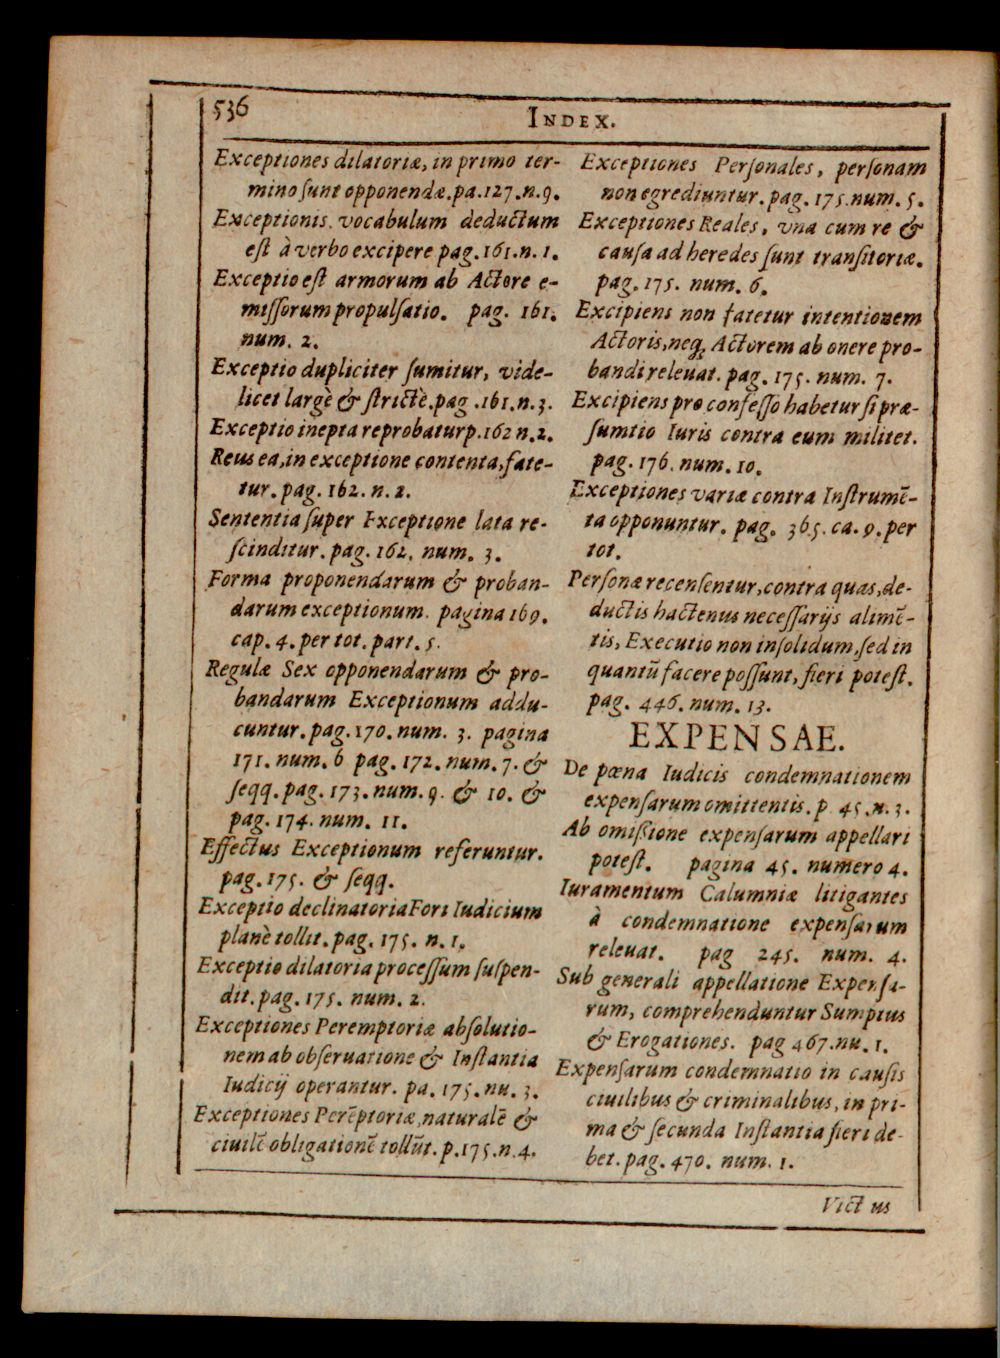 536
INDEX.
Exceptiones dilatoriæ, in primo ter-
mino ſunt opponendæ.pa.127.n.9.
Exceptionis. vocabulum deductum
eſt à verbo excipere pag.161.n.1.
Exceptio eſt armorum ab Actore e-
miſſorum propulſatio. pag. 161.
num. 2.
Exceptio dupliciter ſumitur, vide-
licet largè & ſtrictè.pag .161.n.3.
Exceptio inepta reprobatur p.162 n.2.
Reus ea, in exceptione contenta, fate-
tur. pag. 162. n. 2.
Sententia ſuper Exceptione lata re-
ſcinditur. pag. 162. num. 3.
Forma proponendarum & proban-
darum exceptionum. pagina 169.
cap. 4. per tot. part. 5.
Regulæ Sex opponendarum & pro-
bandarum Exceptionum addu-
cuntur. pag. 170. num. 3. pagina
171. num. 6 pag. 172. num. 7. &
ſeqq. pag. 173. num. 9. & 10. &
pag. 174. num. 11.
Effectus Exceptionum referuntur.
pag. 175. & ſeqq.
Exceptio declinatoria Fori Iudicium
planè tollit. pag. 175. n. 1.
Exceptio dilatoria proceſſum ſuſpen-
dit. pag. 175. num. 2.
Exceptiones Peremptoriæ abſolutio-
nem ab obſeruatione & Inſtantia
Iudicij operantur. pa. 175. nu. 3.
Exceptiones Perẽptoriæ, naturalẽ &
ciuilẽ obligationẽ tollũt. p.175.n.4.
Exceptiones Perſonales, perſonam
non egrediuntur. pag. 175. num. 5.
Exceptiones Reales, vna cum re &
cauſa ad heredes ſunt tranſitoriæ.
pag. 175. num. 6.
Excipiens non fatetur intentionem
Actoris, neq; Actorem ab onere pro-
bandi releuat. pag. 175. num. 7.
Excipiens pro confeſſo habetur ſi præ-
ſumtio Iuris contra eum militet.
pag. 176. num. 10.
Exceptiones variæ contra Inſtrumẽ-
ta opponuntur. pag. 365. ca. 9. per
tot.
Perſonæ recenſentur, contra quas, de-
ductis hactenus neceſſarijs alimẽ-
tis, Executio non in ſolidum, ſed in
quantũ facere poſſunt, fieri poteſt.
pag. 446. num. 13.
EXPENSAE.
De pœna Iudicis condemnationem
expenſarum omittentis. p 45. n. 3.
Ab omißione expenſarum appellari
poteſt. pagina 45. numero 4.
Iuramentum Calumniæ litigantes
à condemnatione expenſarum
releuat. pag 245. num. 4.
Sub generali appellatione Expenſa-
rum, comprehenduntur Sumptus
& Erogationes. pag 467. nu. 1.
Expenſarum condemnatio in cauſis
ciuilibus & criminalibus, in pri-
ma & ſecunda Inſtantia fieri de-
bet. pag. 470. num. 1.
Vict us